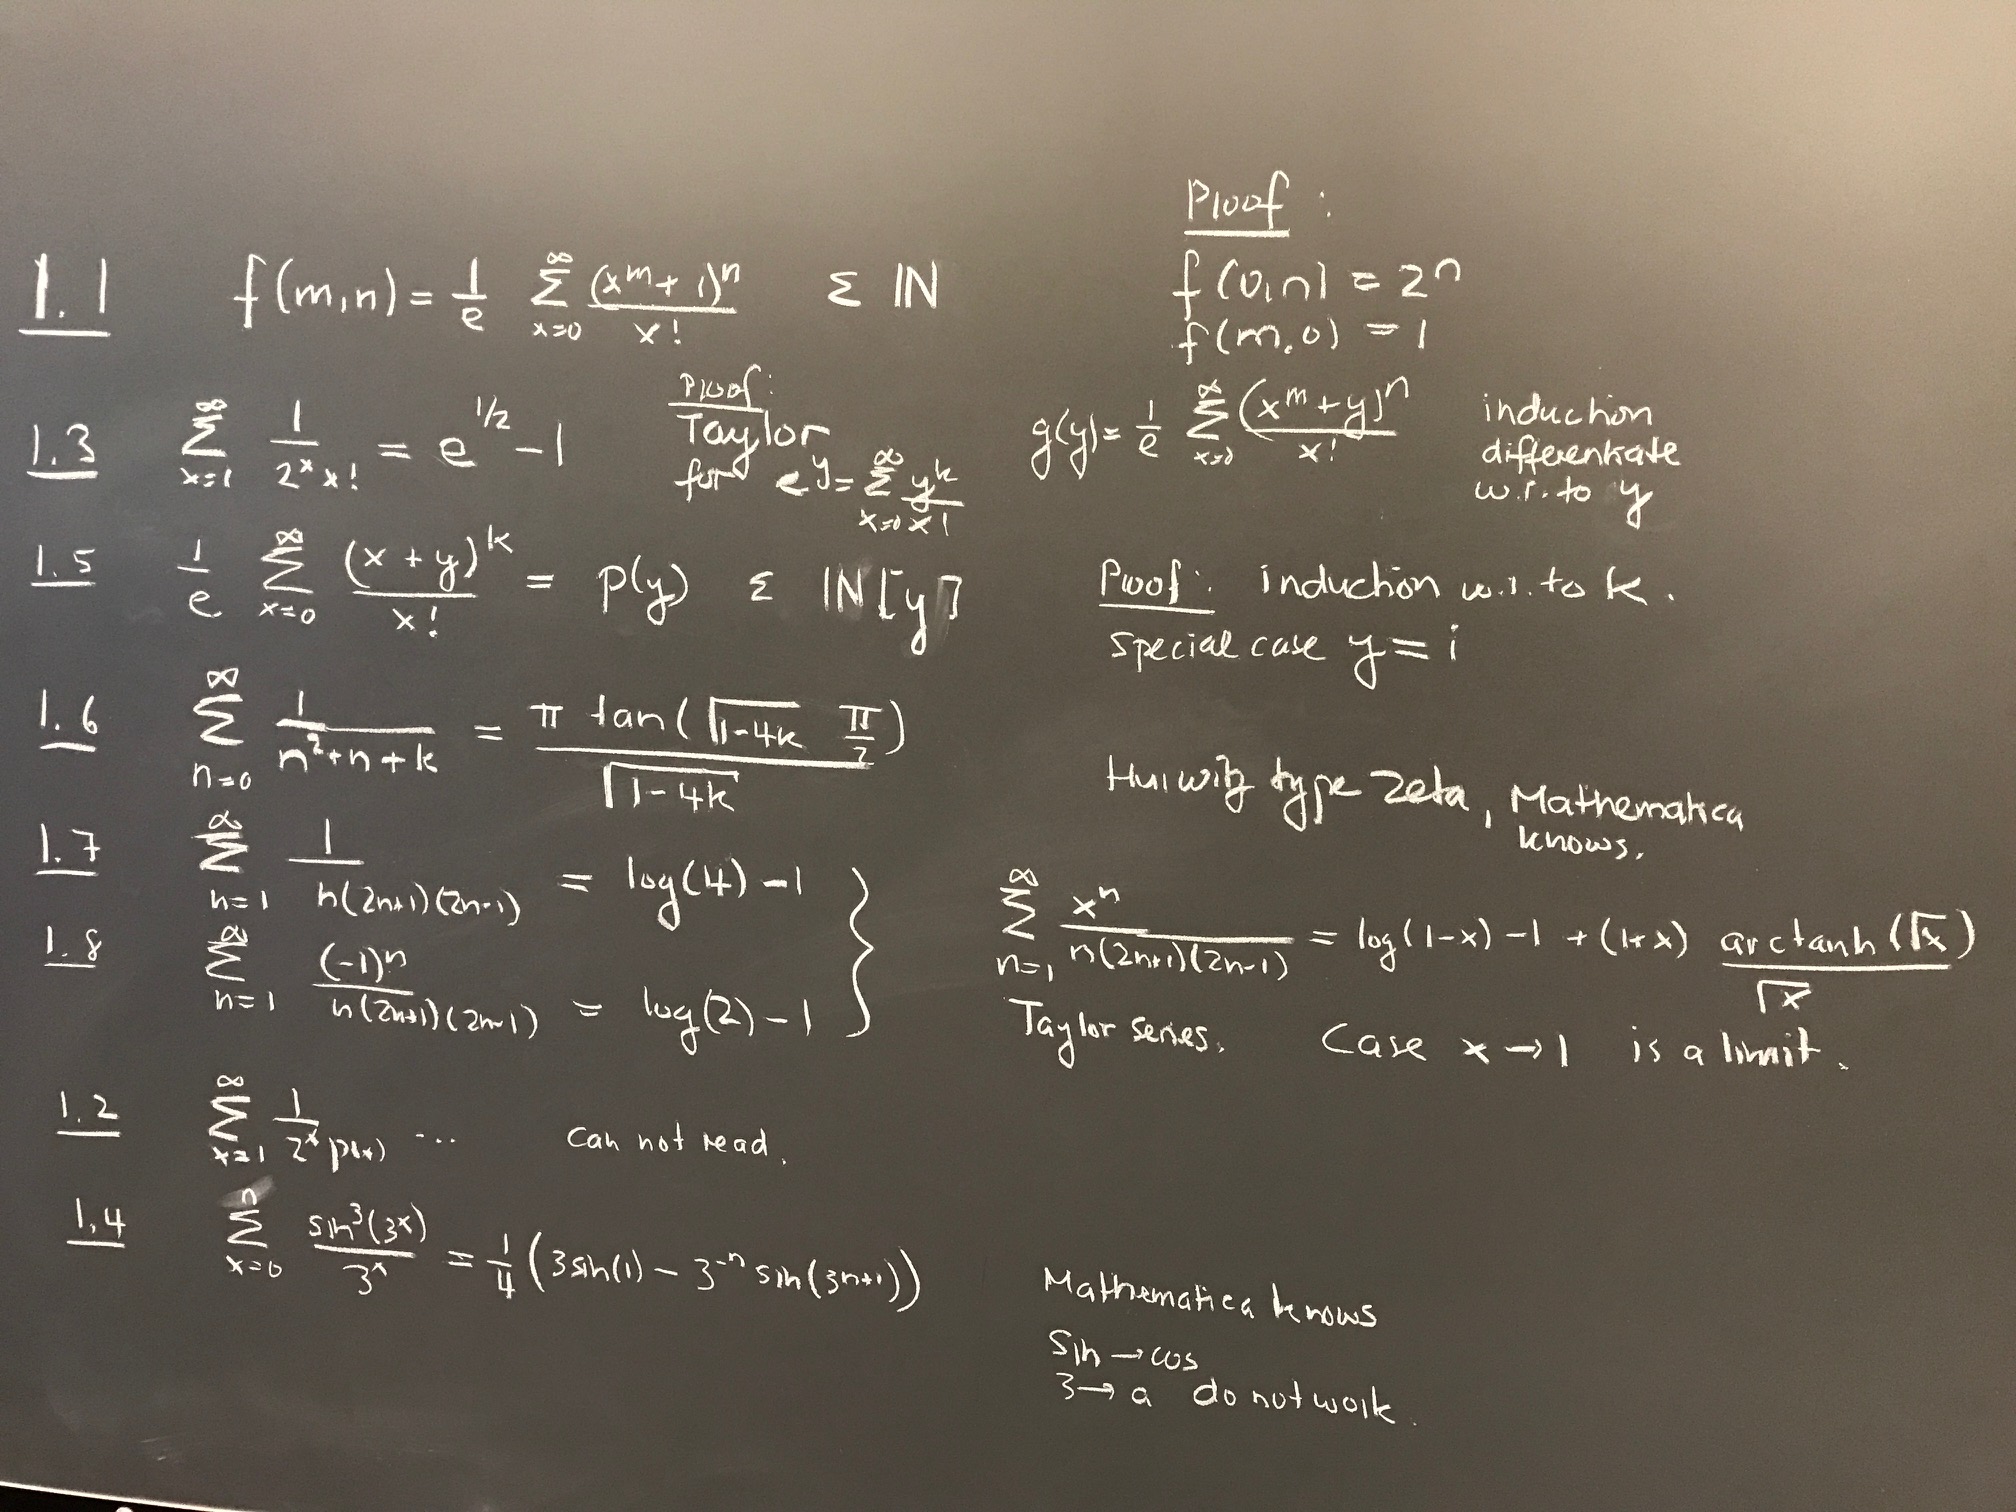 Proof :
1.1 f(m,n) = 1/e ∑_{x=0}^{∞} (x^m + 1)^n / x! ε IN
f(0,n) = 2^n
f(m,0) = 1
1.3 ∑_{x=1}^{∞} 1/(2^x x!) = e^{1/2} - 1
Proof:
Taylor
for e^y = ∑_{x=0}^{∞} y^k / x!
g(y) = 1/e ∑_{x=0}^{∞} (x^m + y)^n / x!
induction
differentiate
w.r. to y
1.5 1/e ∑_{x=0}^{∞} (x + y)^k / x! = p(y) ε IN[y]
Proof: induction w.r. to k.
special case y = i
1.6 ∑_{n=0}^{∞} 1/(n^2+n+k) = π tan(√(1-4k) π/2) / √(1-4k)
Hurwitz type zeta, Mathematica
knows.
1.7 ∑_{n=1}^{∞} 1/(n(2n+1)(2n-1)) = log(4) - 1
1.8 ∑_{n=1}^{∞} (-1)^n/(n(2n+1)(2n-1)) = log(2) - 1 }
∑_{n=1}^{∞} x^n/(n(2n+1)(2n-1)) = log(1-x) - 1 + (1+x) arctanh(√x)/√x
Taylor series. Case x → 1 is a limit.
1.2 ∑_{x=1}^{∞} 1/(2^x p(x)) ... can not read.
1.4 ∑_{x=0}^{n} sin^3(3^x)/3^x = 1/4 (3sin(1) - 3^{-n} sin(3^{n+1}))
Mathematica knows
sin → cos
3 → a do not work.